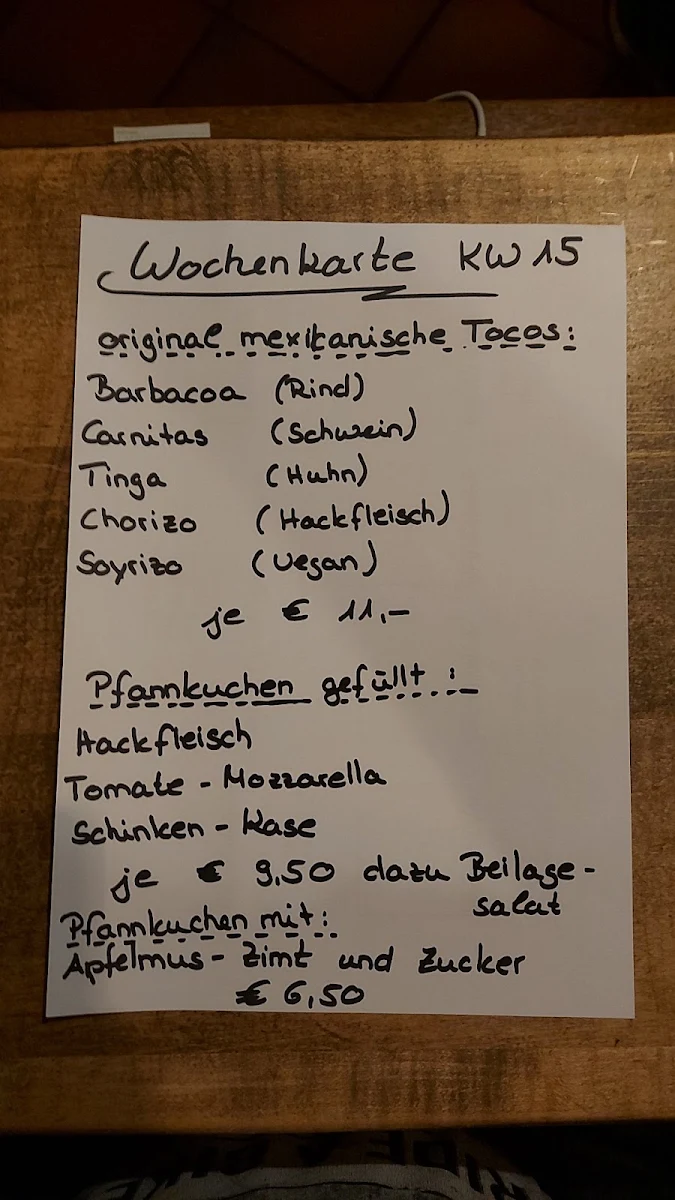 Wochenkarte KW 15
original mexikanische Tocos:
Barbacoa (Rind)
Carnitas (Schwein)
Tinga (Huhn)
Chorizo (Hackfleisch)
Soyrizo (Vegan)
je € 11,-
Pfannkuchen gefüllt:
Hackfleisch
Tomate - Mozzarella
Schinken - Käse
je € 9,50 dazu Beilage-
salat
Pfannkuchen mit:
Apfelmus - Zimt und Zucker
€ 6,50